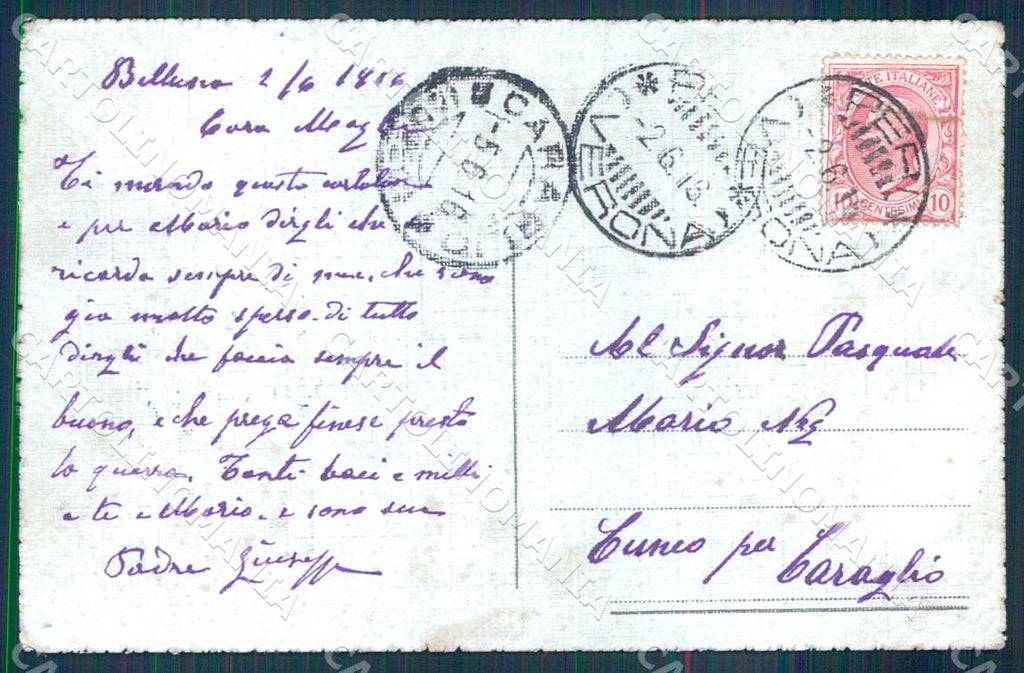 2/6 1916
Cara Moglie
Ti mando questa cartolina
e per Mario dirgli che
ricorda sempre di me, che sono
gia molto spesso di tutto
dirgli che faccia sempre il
buono, e che prega finese presto
la guerra. Tanti baci e milli
a te e Mario. e sono suo
Padre Giuseppe
CARAGLIO
CUNEO
-5.6.16
* PESCHIERA *
-2.6.16
VERONA
* PESCHIERA *
-2.6.16
VERONA
POSTE ITALIANE
10 10
CENTESIMI
Al Signor Pasquale
Mario
Cuneo per
Caraglio
CARTOLINOMANIA